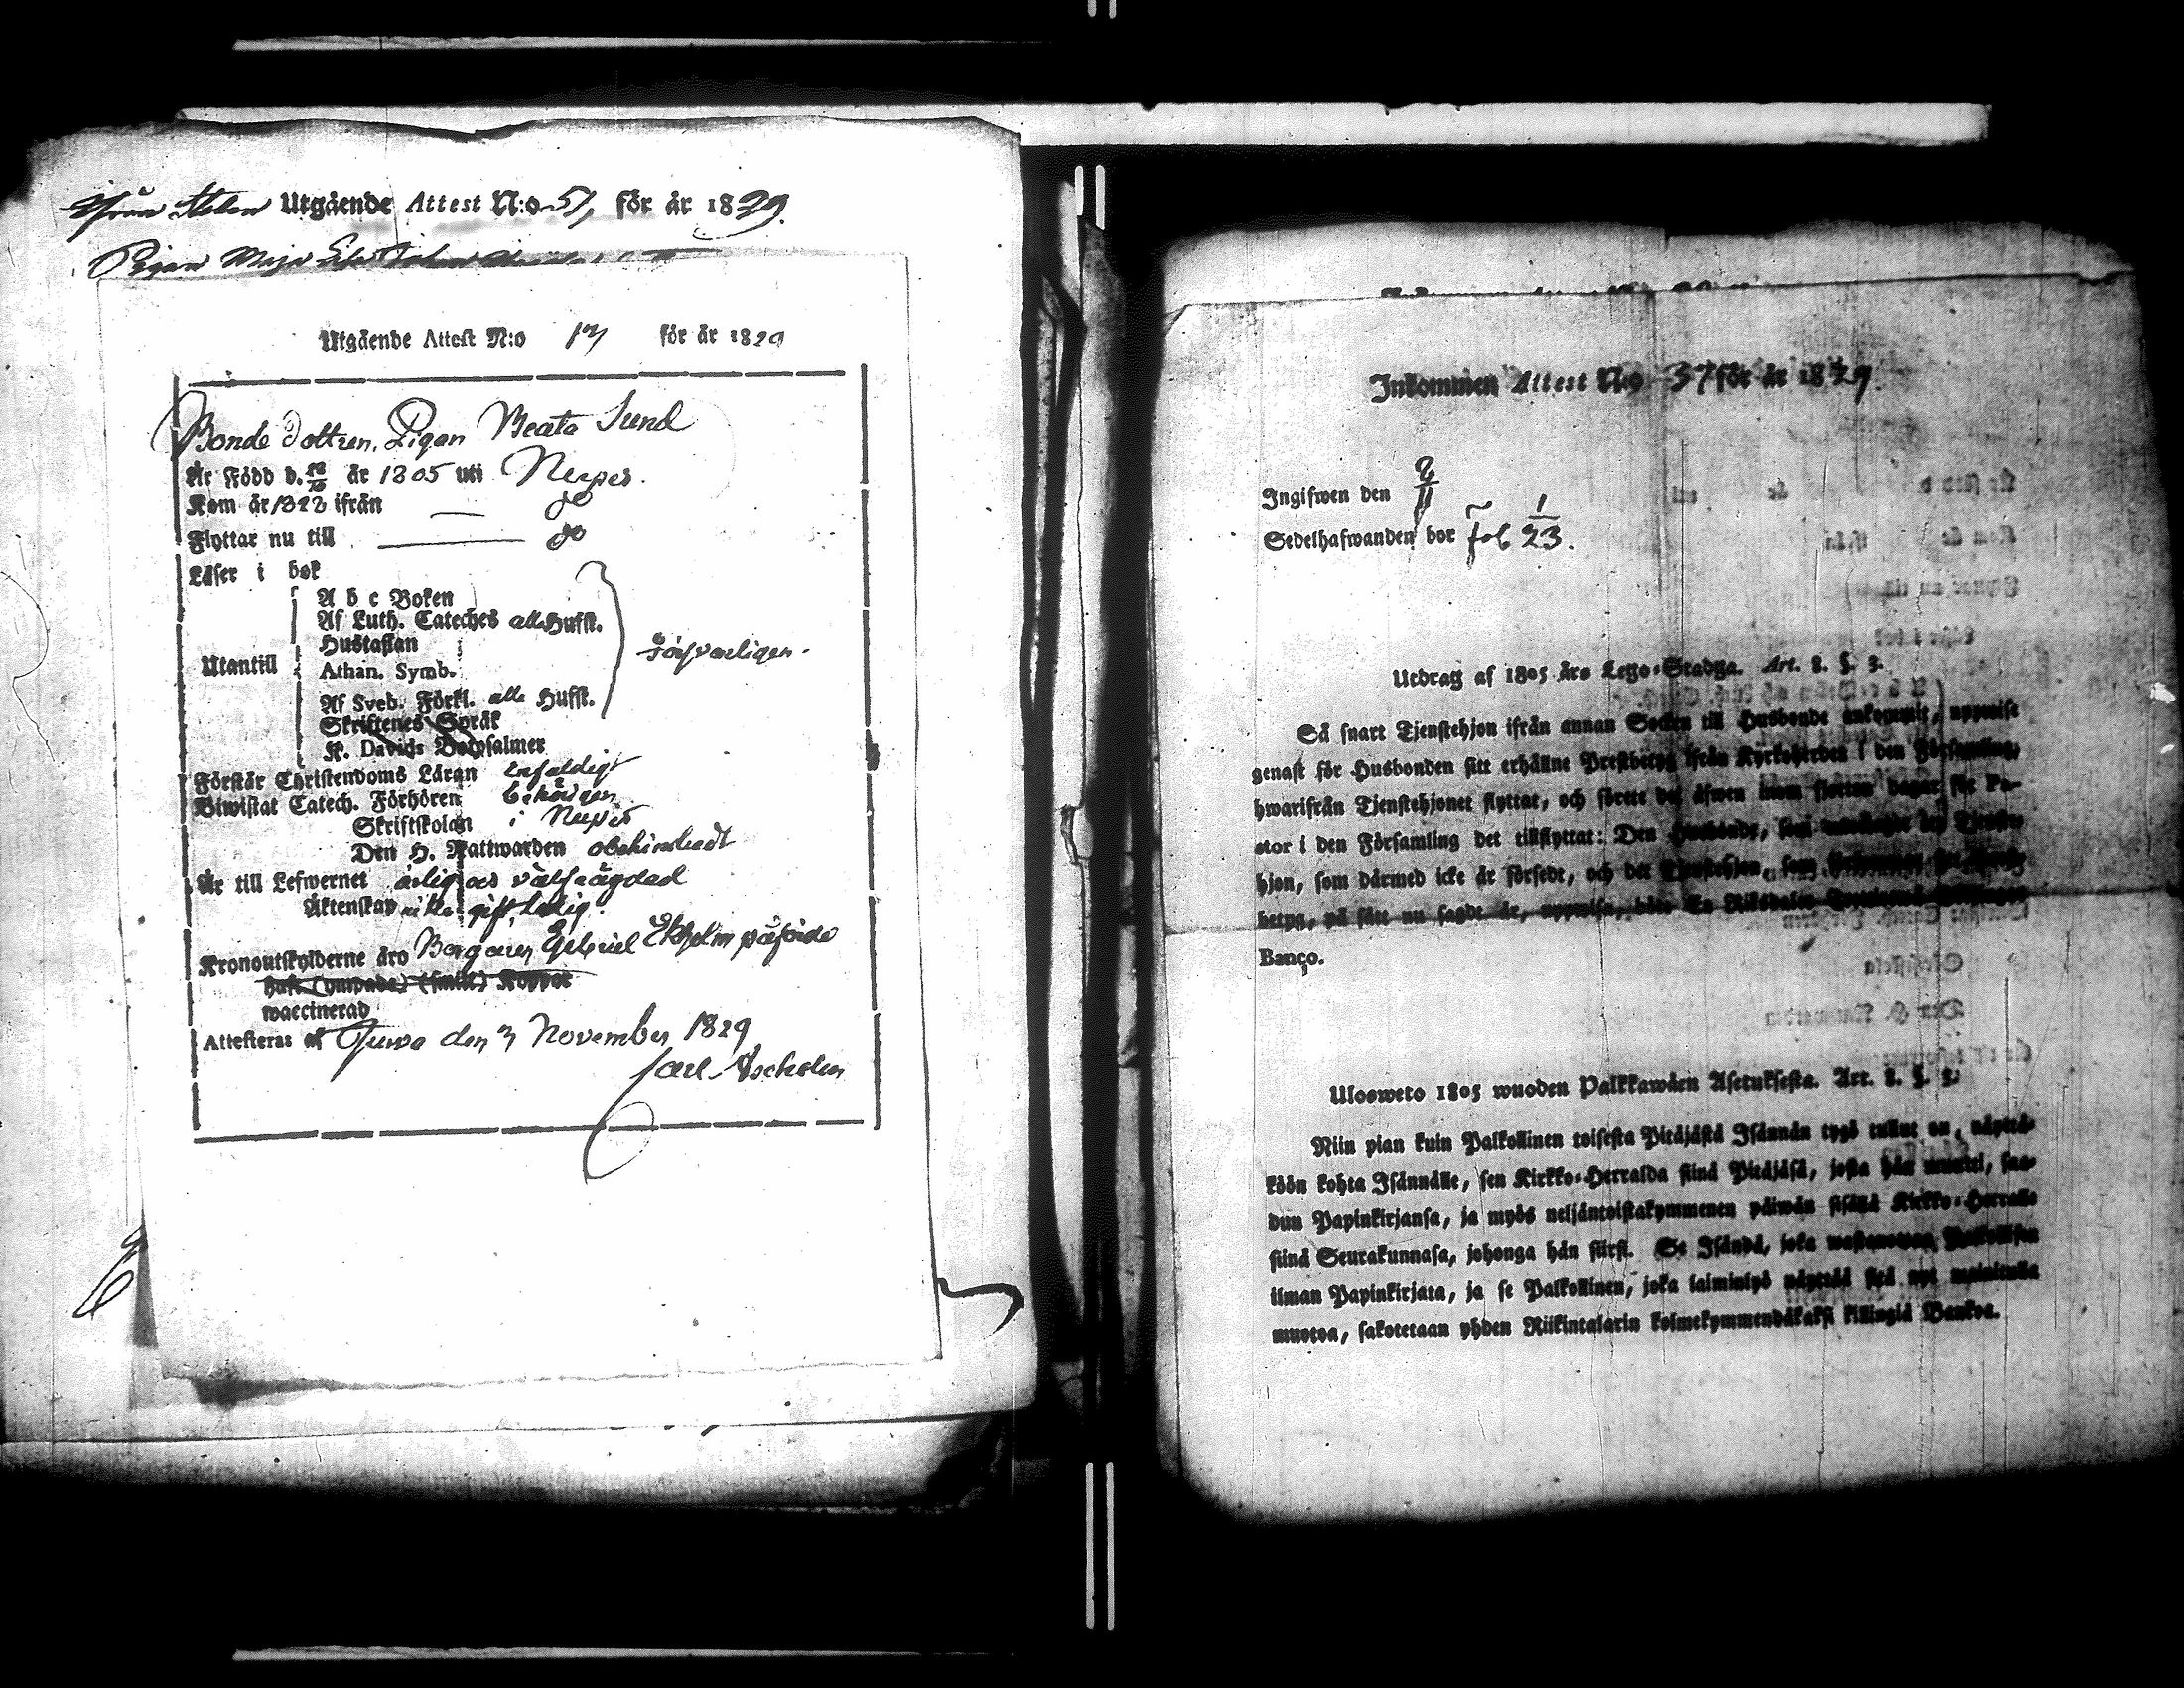 Utgående Attest N:o 51, för år 1829.
Pigan Maja
Utgående Attest N:o för år 1829
Bonde dottren, Pigan Beata Sund
Är Född d. år 1805 uti
Kom år 1822 ifrån — do
Flyttar nu till — do
Läser i bok
A b c Boken
Af Luth. Cateches alla Hufst.
Hustaflan
Utantill
Athan. Symb.
försvarligen.
Af Sveb. Förkl. alla Hufst.
Skriftenes Språk
K. Davids Botpsalmer
Förstår Christendoms Läran enfaldigt
Biwistat Catech. Förhören behörigen
Skriftskolan i
Den H. Nattwarden obehindradt
Är till Lefwernet ärlig och välfrägdad
Äktenskap icke gift, ledig.
Kronoutskylderne äro Borgaren Gabriel Ekholm påförde
haft (ympade) (smitt) Koppor
waccinerad
Attesteras af den 3 November 1829
Carl
Inkommen Attest N:o 37 för år 1829.
Ingifwen den 8/11
Sedelhafwanden bor fol 1/23.
Utdrag af 1805 års Lego-Stadga. Art. 8. §. 3.
Så snart Tjenstehjon ifrån annan Socken till Husbonde ankommit, uppwise
genast för Husbonden sitt erhållne Prestbetyg ifrån Kyrkoherden i den Församling,
hwarifrån Tjenstehjonet flyttat, och förete det äfwen inom fjorton dagar för Pa-
stor i den Församling det tillflyttat: Den Husbonde, som
hjon, som därmed icke är försedt, och det Tjenstehjon, som
betyg, på sätt nu sagdt är, uppwisa, böte En Riksdaler
Banco.
Ulosweto 1805 wuoden Palkkawäen Asetuksesta. Art. 8. §. 3.
Niin pian kuin Palkollinen toisesta Pitäjästä Isännän tygö tullut on, näyttä-
köön kohta Isännälle, sen Kirkko-Herralda siinä Pitäjäsä, josta hän muutti, saa-
dun Papinkirjansa, ja myös neljäntoistakymmenen päiwän sisällä Kirkko-Herralle
siinä Seurakunnasa, johonga hän siirsi. Se Isändä, joka wastanottaa Palkollisen
ilman Papinkirjata, ja se Palkollinen, joka laiminlyö näyttää sitä nyt mainitulla
muotoa, sakotetaan yhden Riikintalarin kolmekymmendäkaksi killingiä Bankoa.